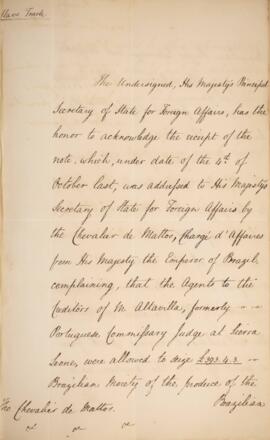 Slave Trade.
The Undersigned, His Majesty's Principal
Secretary of State for Foreign Affairs, has the
honor to acknowledge the receipt of the
note, which, under date of the 4th of
October last, was addressed to His Majesty's
Secretary of State for Foreign Affairs by
the Chevalier de Mattos, Chargé d'Affaires
from His Majesty the Emperor of Brazil,
complaining, that the Agents to the
Creditors of M. Altavilla, formerly
Portuguese Commissary Judge at Sierra
Leone, were allowed to seize £393.4.3
Brazilian Moiety of the produce of the
Brazilian
The Chevalier de Mattos.